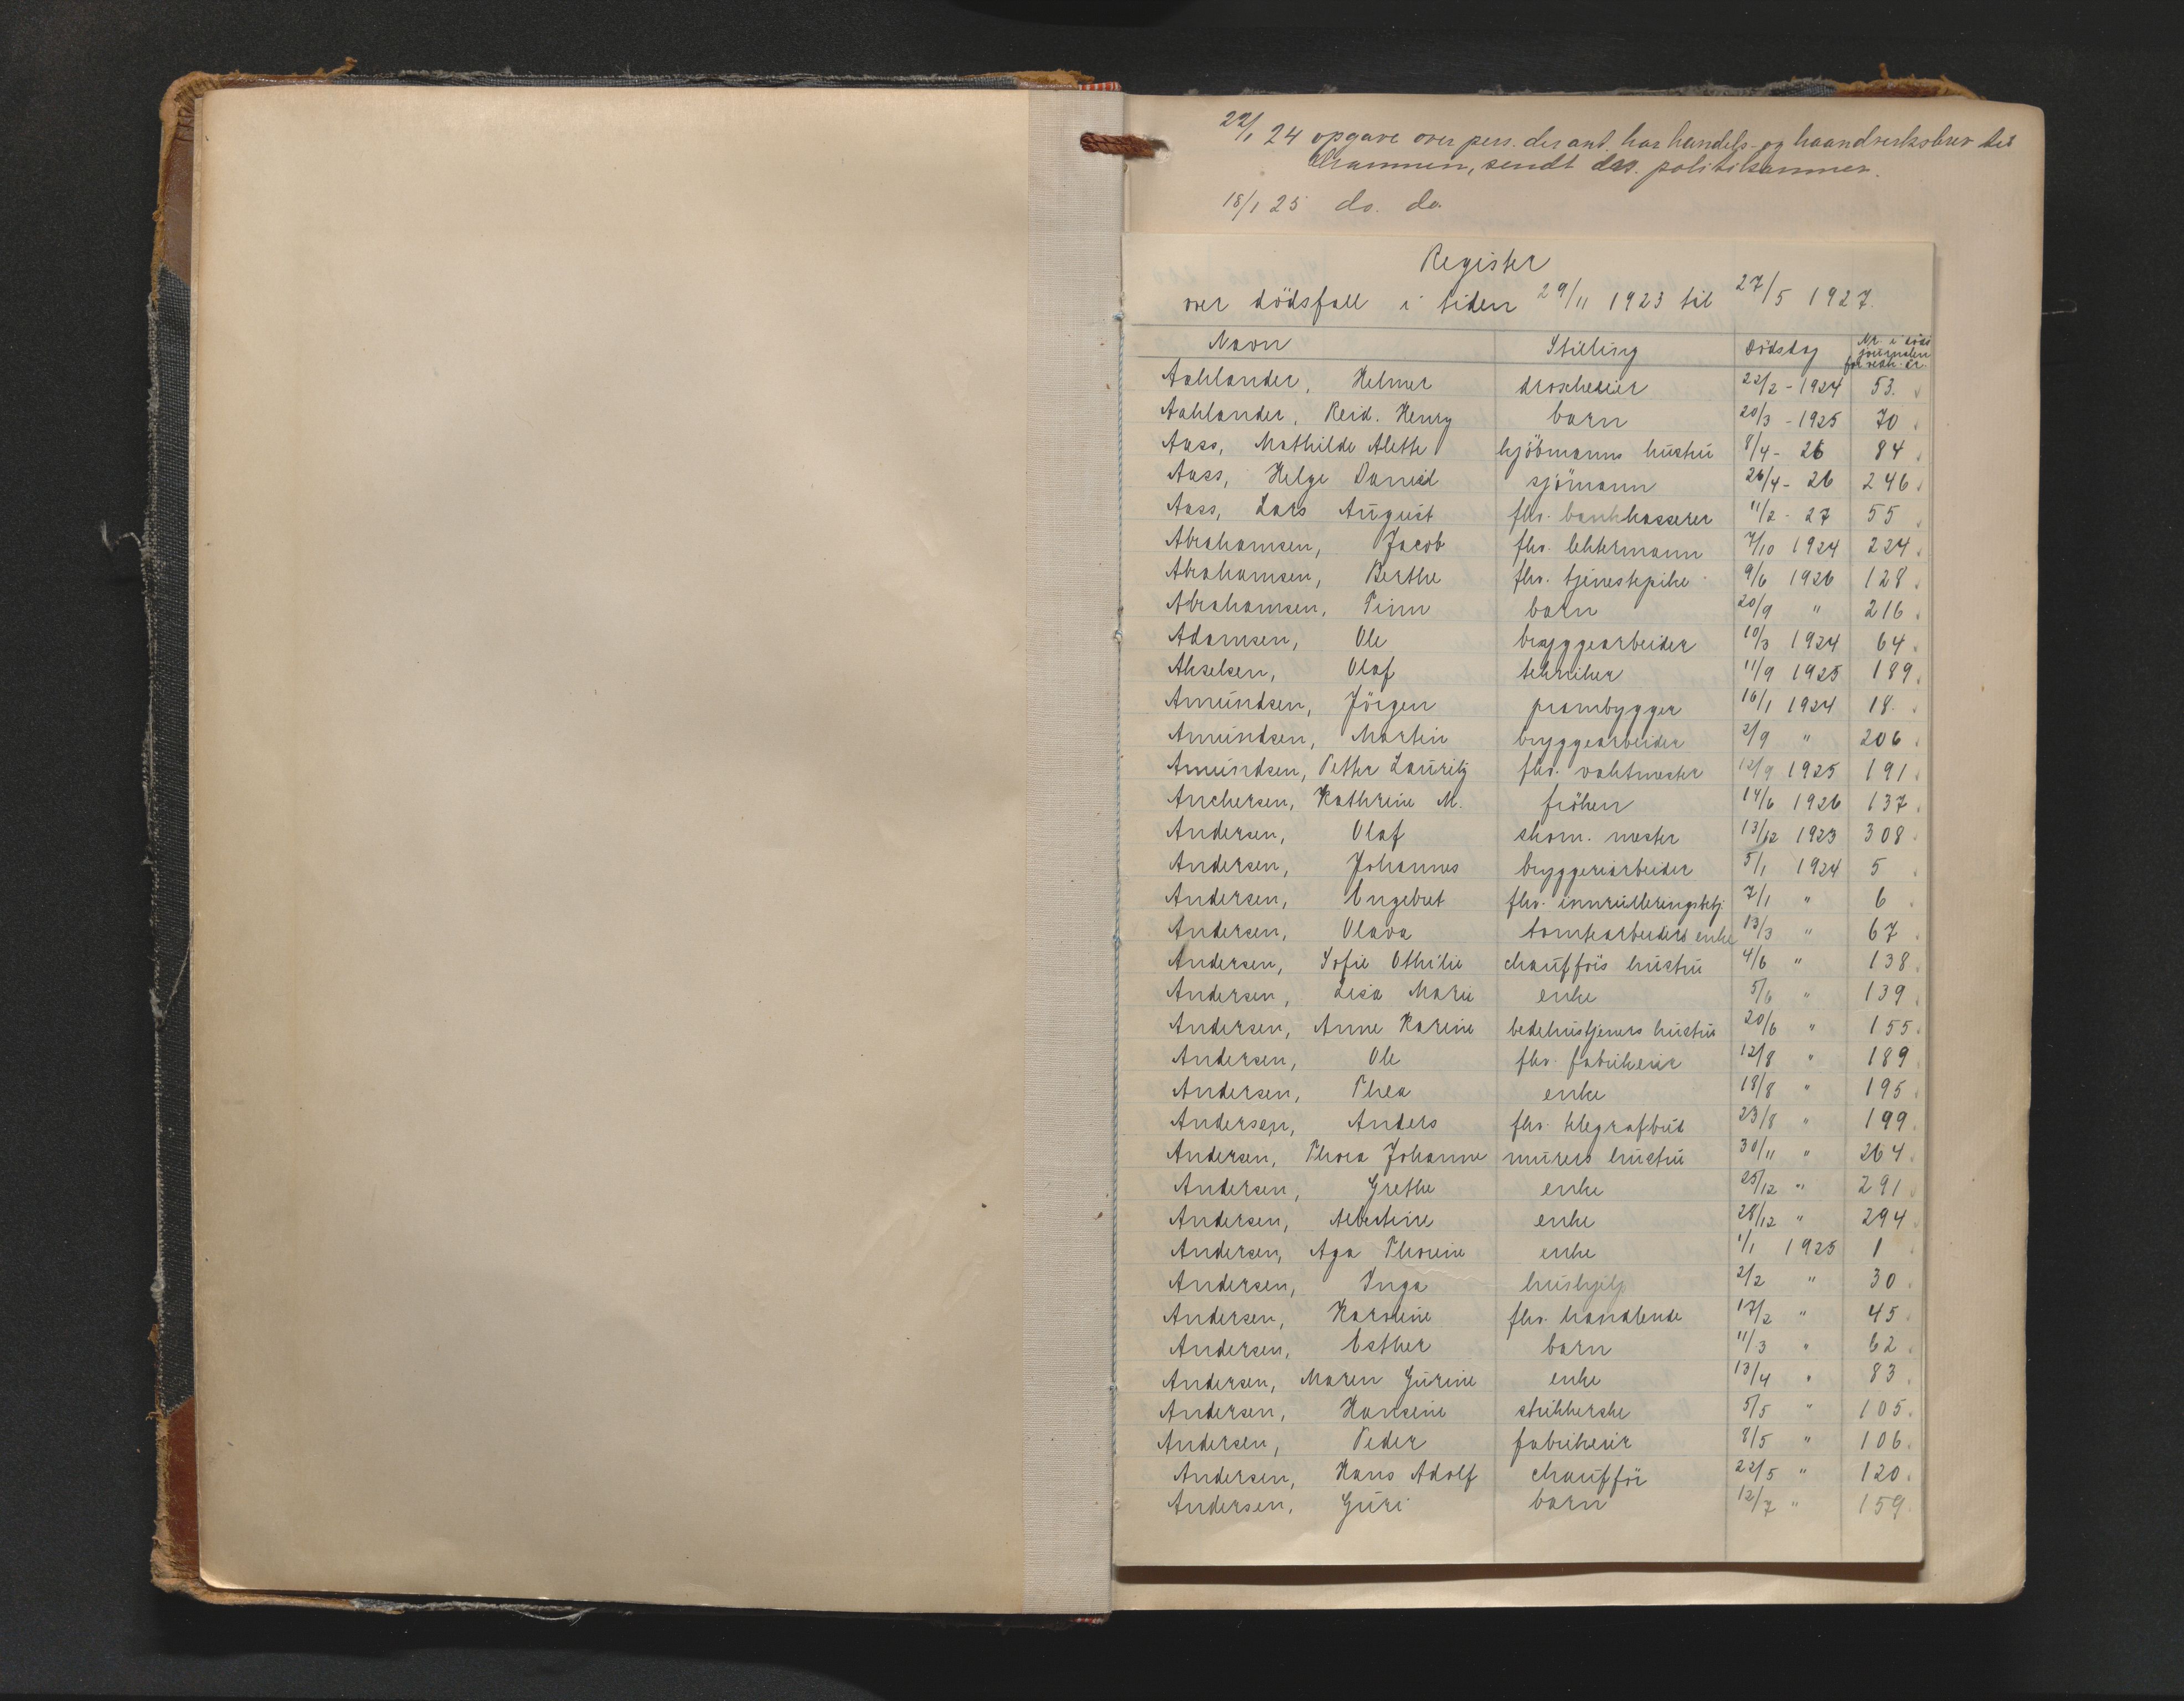 22/1 24 opgave over pers. der ant. har handels- og haandverksbrev til
Drammen, sendt drs. politikammer.
18/1 25 do. do.
Register
over dödsfall i tiden 29/11 1923 til 27/5 1927.
Navn Stilling Dödsdag Nr i döds journalen for vedk. år.
Aahlander, Helmer droscheeier 22/2 - 1924 53.
Aahlander, Reid. Henry barn 20/3 - 1925 70
Aass, Mathilde Alethe kjöbmanns hustru 8/4 - 26 84
Aass, Helge Daniel sjömann 26/4 - 26 246
Aass, Lars August fhv. bankkasserer 11/2 - 27 55
Abrahamsen, Jacob fhv. lektermann 7/10 1924 224
Abrahamsen, Berthe fhv. tjenestepike 9/6 1926 128
Abrahamsen, Finn barn 20/9 " 216
Adamsen, Ole bryggearbeider 10/3 1924 64
Akselsen, Olaf tekniker 11/9 1925 189
Amundsen, Jörgen prambygger 16/1 1924 18.
Amundsen, Martin bryggearbeider 2/9 " 206
Amundsen, Petter Lauritz fhv. vaktmester 12/9 1925 191
Anchersen, Kathrine M. fröken 14/6 1926 137
Andersen, Olaf skom. mester 13/12 1923 308
Andersen, Johannes bryggeriarbeider 5/1 1924 5
Andersen, Engebret fhv. innrulleringsbetj. 7/1 " 6
Andersen, Olava tomtearbeiders enke 13/3 " 67
Andersen, Sofie Othilie chaufförs hustru 4/6 " 138
Andersen, Lisa Marie enke 5/6 " 139
Andersen, Anne Karine bedehustjeners hustru 20/6 " 155
Andersen, Ole fhv. fabrikeier 12/8 " 189
Andersen, Thea enke 18/8 " 195
Andersen, Anders fhv. telegrafbud 23/8 " 199
Andersen, Thora Johanne murers hustru 30/11 " 264
Andersen, Grethe enke 25/12 " 291
Andersen, Albertine enke 28/12 " 294
Andersen, Aga Thorine enke 1/1 1925 1
Andersen, Inga hushjelp 2/2 " 30
Andersen, Karoline fhv. handlende 17/2 " 45
Andersen, Esther barn 11/3 " 62
Andersen, Maren Gurine enke 13/4 " 83
Andersen, Hansine strikkerske 5/5 " 105
Andersen, Peder fabrikeier 8/5 " 106
Andersen, Hans Adolf chaufför 22/5 " 120
Andersen, Guri barn 12/7 " 159